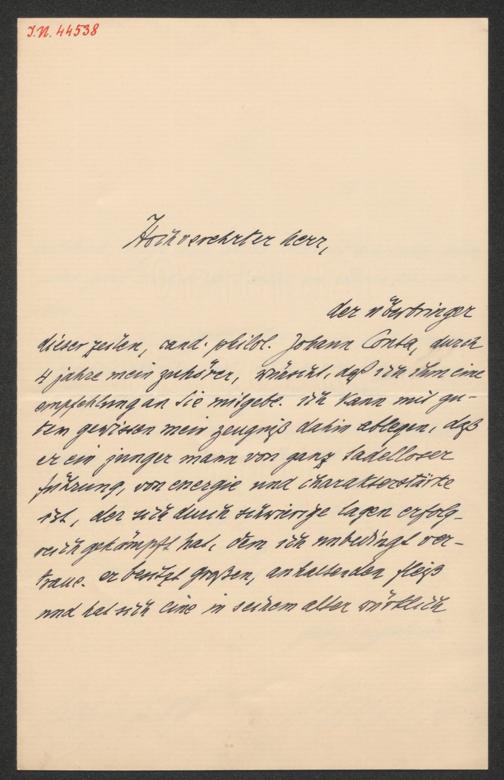 I.N. 44538
Hochverehrter herr,
der überbringer
dieser zeilen, cand. philol. Johann Conta, durch
4 jahre mein zuhörer, wünscht, daß ich ihm eine
empfehlung an Sie mitgebe. ich kann mit gu-
tem gewissen mein zeugniß dahin ablegen, daß
er ein junger mann von ganz tadelloser
führung, von energie und charakterstärke
ist, der sich durch schwierige lagen erfolg-
reich gekämpft hat, dem ich unbedingt ver-
traue. er besitzt großen, anhaltenden fleiß
und hat sich eine in seinem alter wirklich